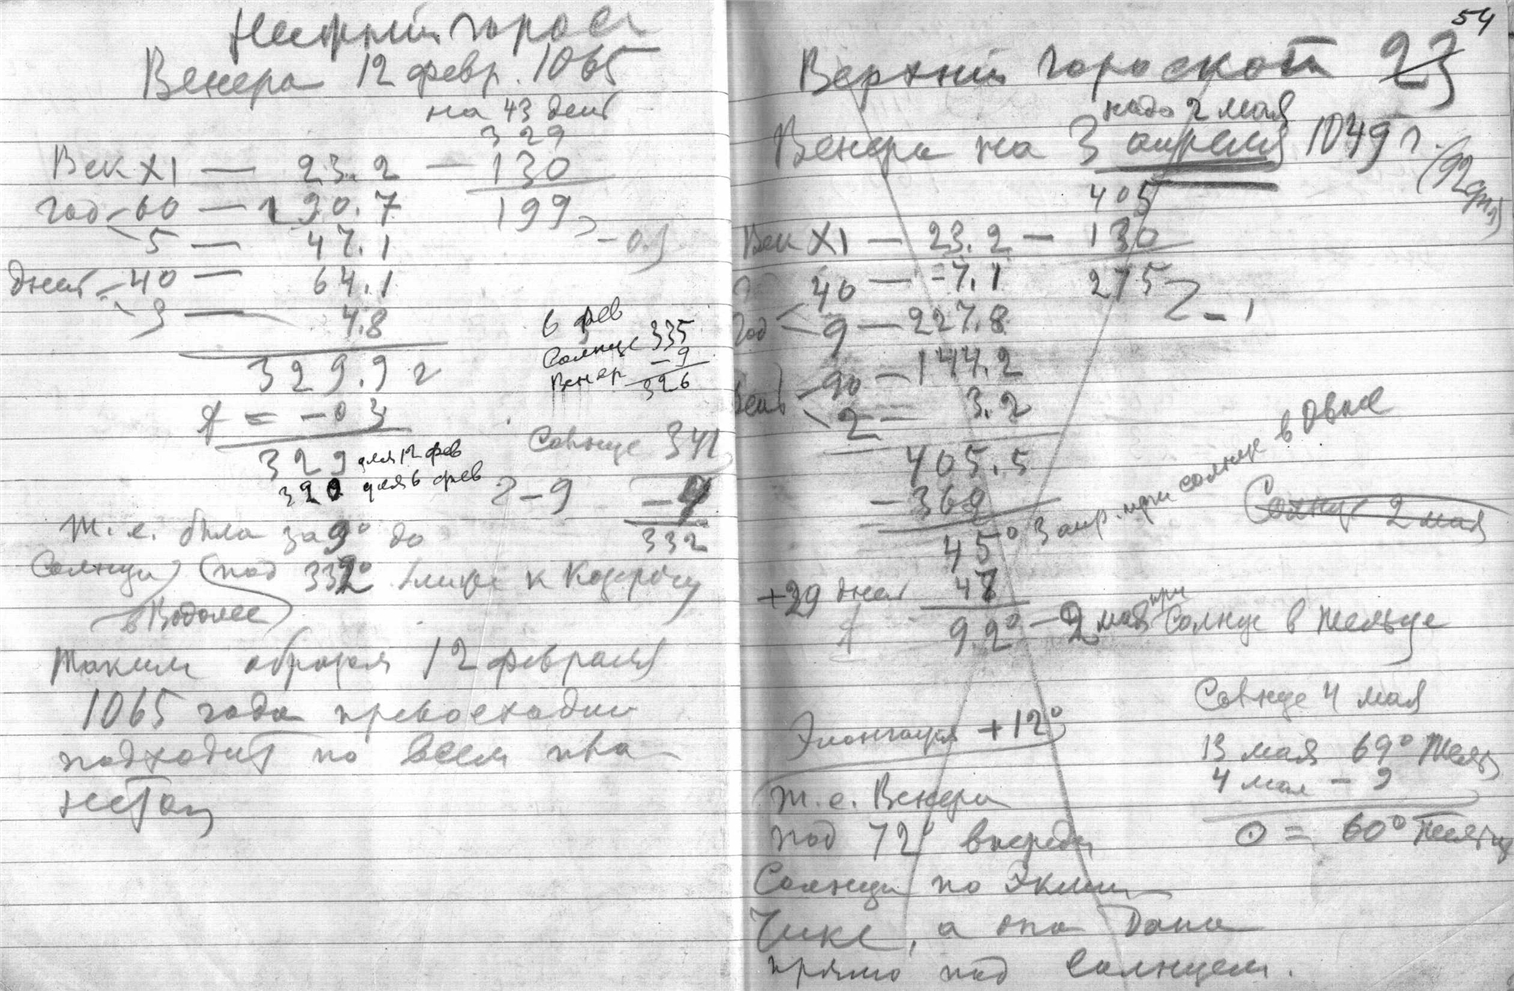 Нижний гороск
Венера 12 февр. 1065
на 43 дня
329
Век XI — 23.2 — 130
год 60 — 190.7 199
5 — 47.1 -0.3
дней 40 — 64.1
3 — 4.8
329.9
= -03
329 для 12 фев
320 для 6 фев
6 фев
Солнце 335
-9
Венер 326
Солнце 341
-9
332
т.е. была за 9° до
Солнца (под 332° ближе к Козерогу
в Водолее
Таким образом 12 февраля
1065 года превосходно
подходит по всем пла-
нетам
54
Верхний гороскоп 23
надо 2 мая
Венера на 3 апреля 1049 г.
(92 дня)
405
Век XI — 23.2 — 130
40 — 7.1 275
год 9 — 227.8
90 — 144.2
2 — 3.2
405.5
-360
45° 3 апр. при солнце в Овне
Солнце 2 мая
+29 дней 47
92° — 2 мая при Солнце в Тельце
Солнце 4 мая
Элонгация +12°
13 мая 69° Телец
4 мая - 9
☉ = 60° Тельца
т.е. Венера
под 72° впереди
Солнца по Эклип-
тике, а она дана
прямо под Солнцем.